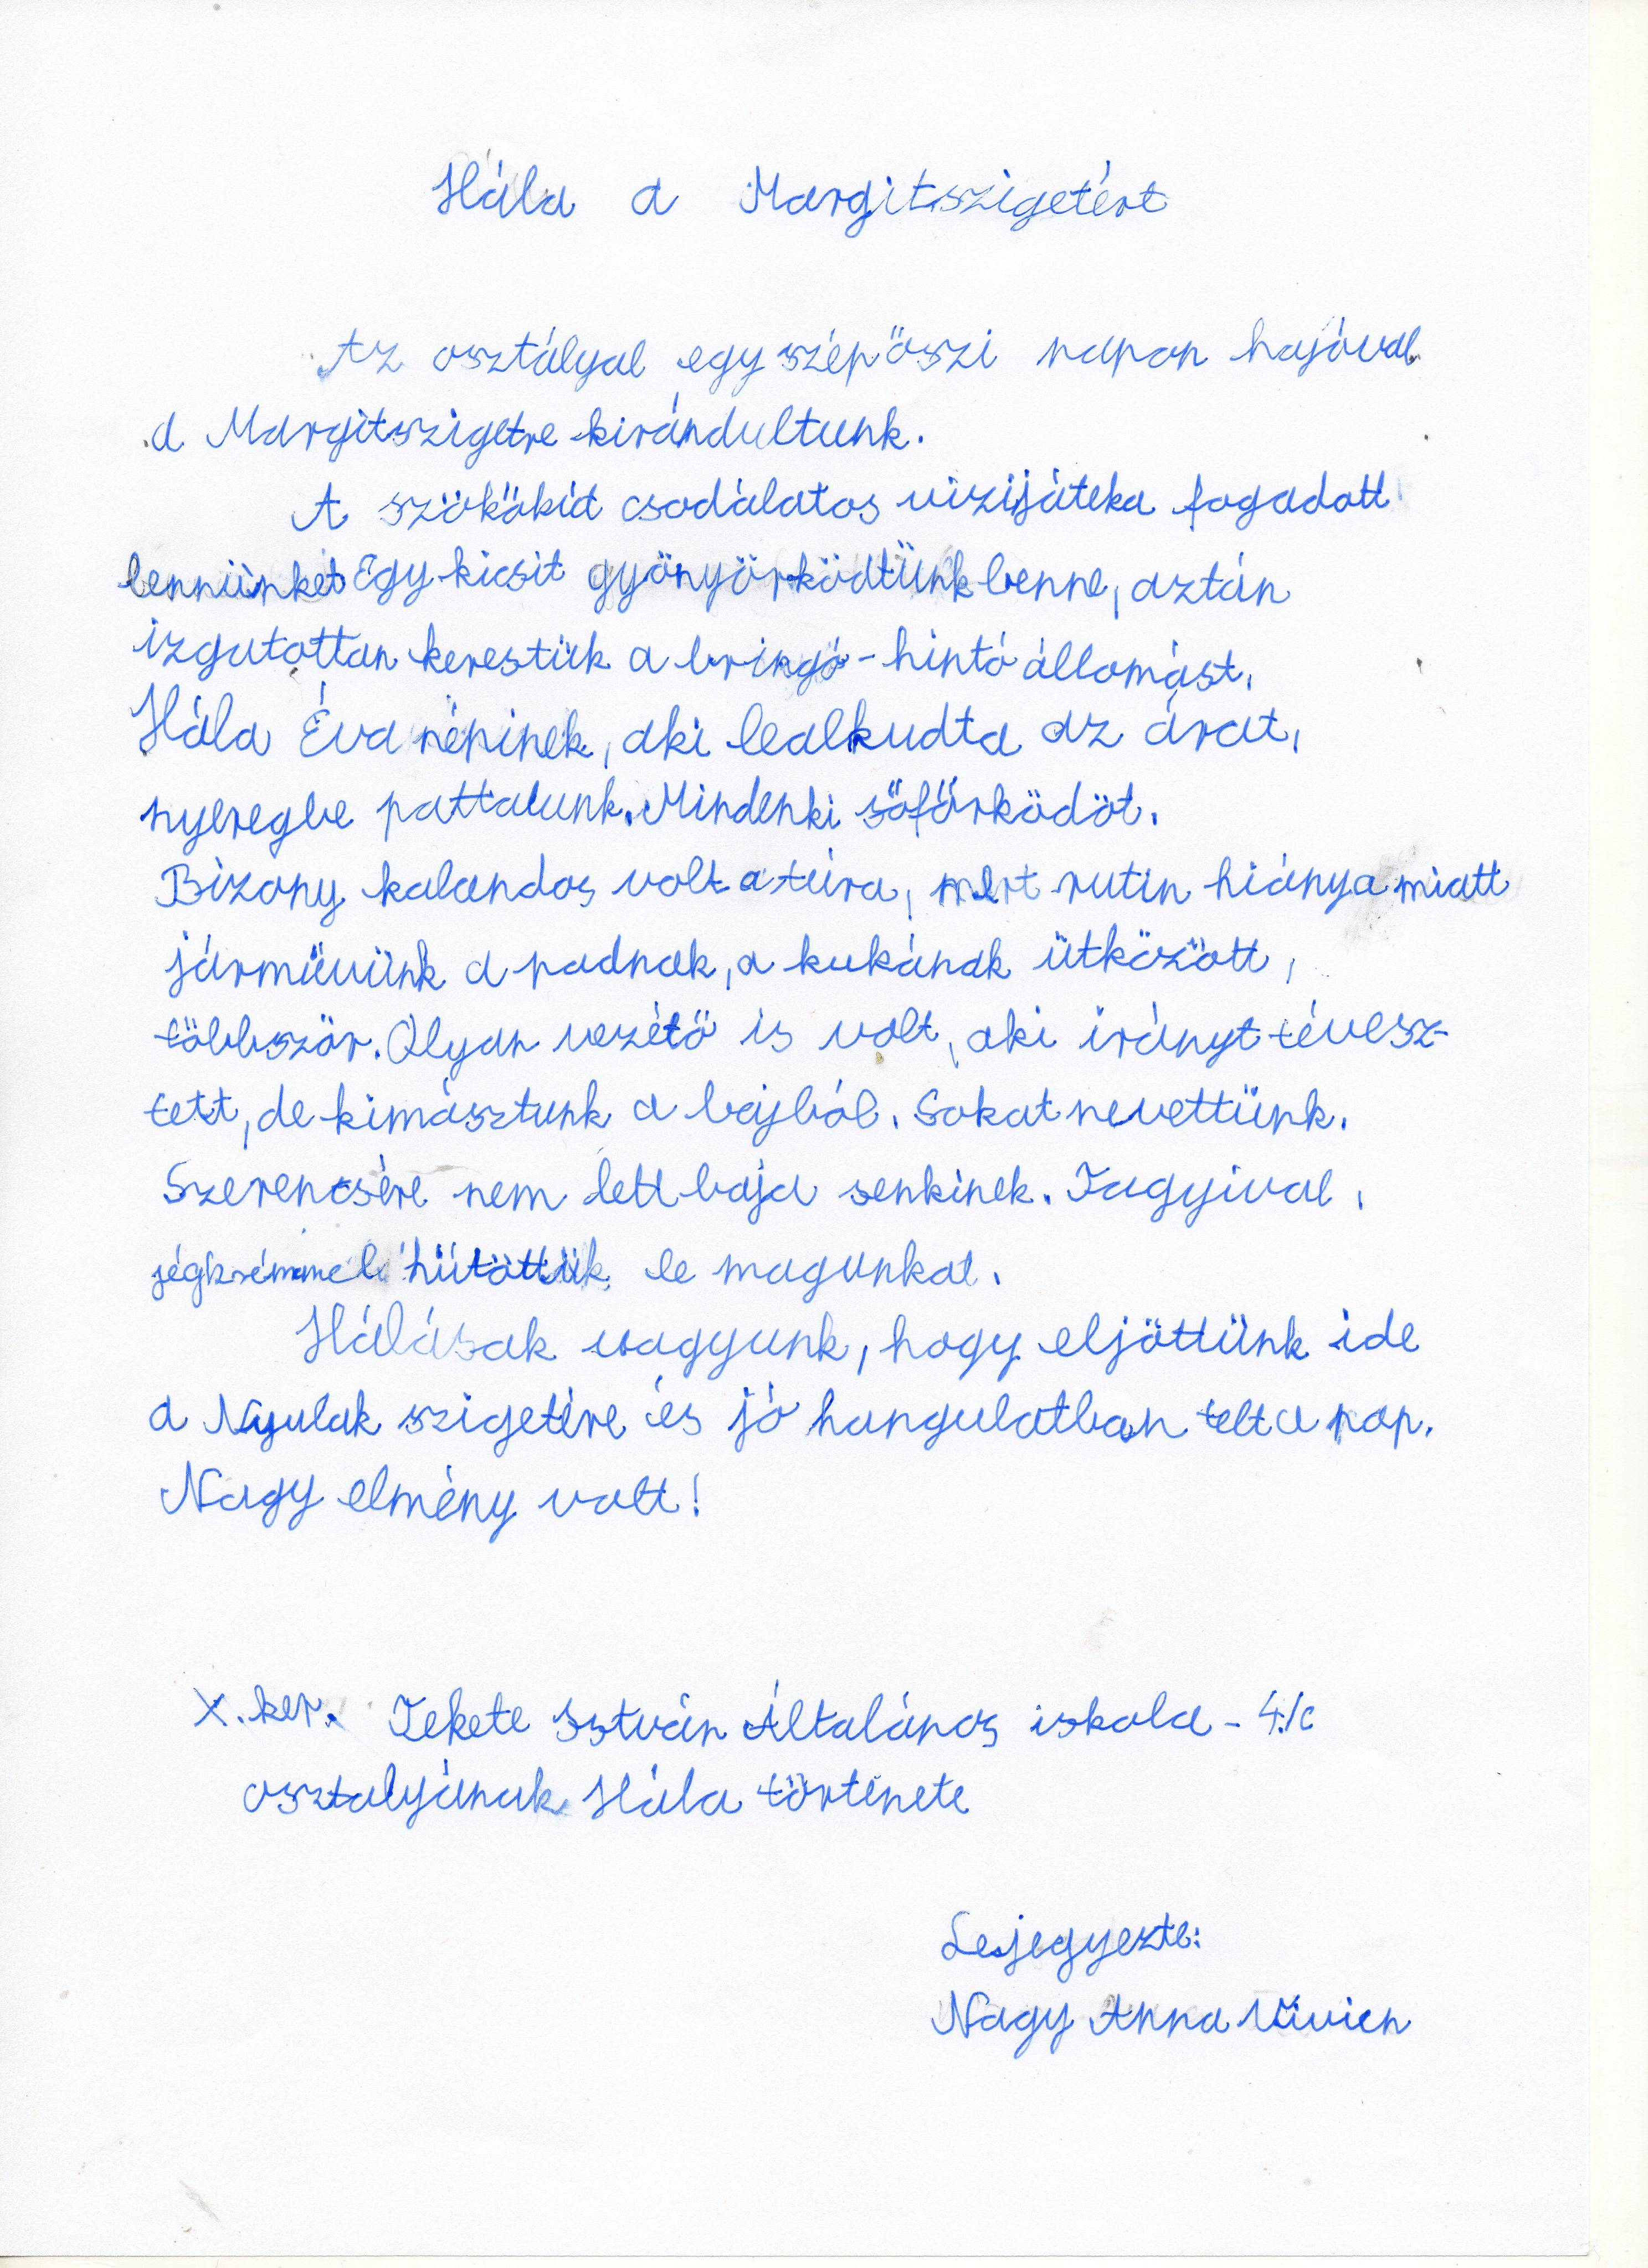 Hála a Margitszigetért
Az osztályal egy szép őszi napon hajóval
a Margitszigetre kirándultunk.
A szökőkút csodálatos vizijátéka fogadott
bennünket Egy kicsit gyönyörködtünk benne, aztán
izgatottan kerestük a bringó-hintó állomást.
Hála Éva néninek, aki lealkudta az árat,
nyeregbe pattatunk. Mindenki söfőrködöt.
Bizony kalandos volt a túra, mert rutin hiánya miatt
járművünk a padnak, a kukának ütközött,
többször. Olyan vezető is volt, aki irányt tévesz-
tett, de kimásztunk a bajból. Sokat nevettünk.
Szerencsére nem lett baja senkinek. Fagyival,
jégkrémmel hűtöttük le magunkat.
Hálásak vagyunk, hogy eljöttünk ide
a Nyulak szigetére és jó hangulatban telt a nap.
Nagy elmény volt!
X. ker. Fekete István Általános iskola - 4./c
osztalyának Hála története
Lejegyezte:
Nagy Anna Vivien